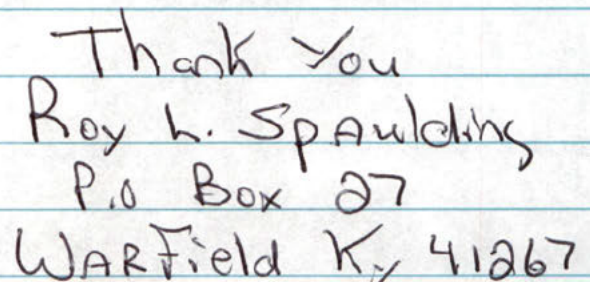 Thank You
Roy L. Spaulding
P.O Box 27
WARField Ky 41267